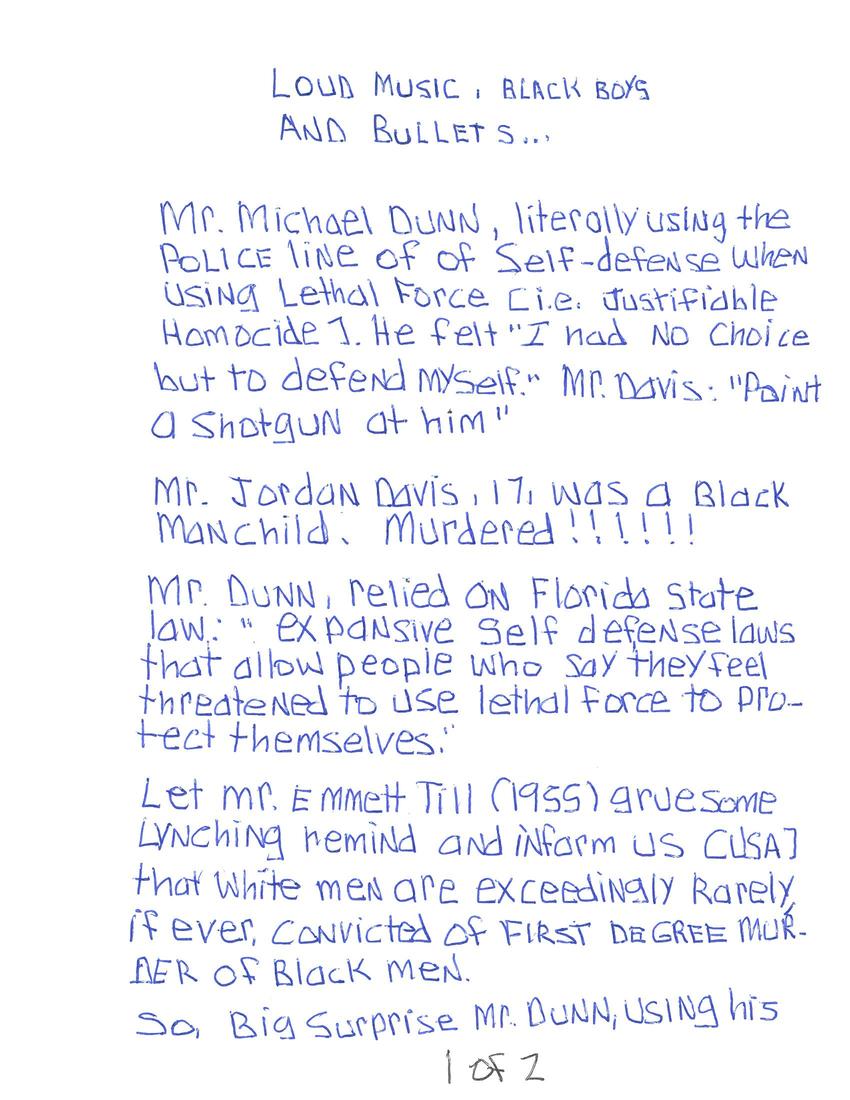 LOUD MUSIC, BLACK BOYS
AND BULLETS...
Mr. Michael DUNN, literally using the
POLICE line of of Self-defense when
using Lethal Force [i.e. Justifiable
Homocide]. He felt "I had NO Choice
but to defend myself." Mr. Davis: "Point
a shotgun at him"
Mr. Jordan Davis, 17, was a Black
Manchild. Murdered!!!!!!
Mr. DUNN, relied ON Florida State
law: "expansive self defense laws
that allow people who say they feel
threatened to use lethal force to pro-
tect themselves."
Let mr. Emmett Till (1955) gruesome
Lynching remind and inform us [USA]
that White men are exceedingly Rarely,
if ever, convicted of FIRST DEGREE MUR-
DER of Black men.
So, Big Surprise Mr. DUNN, using his
1 of 2